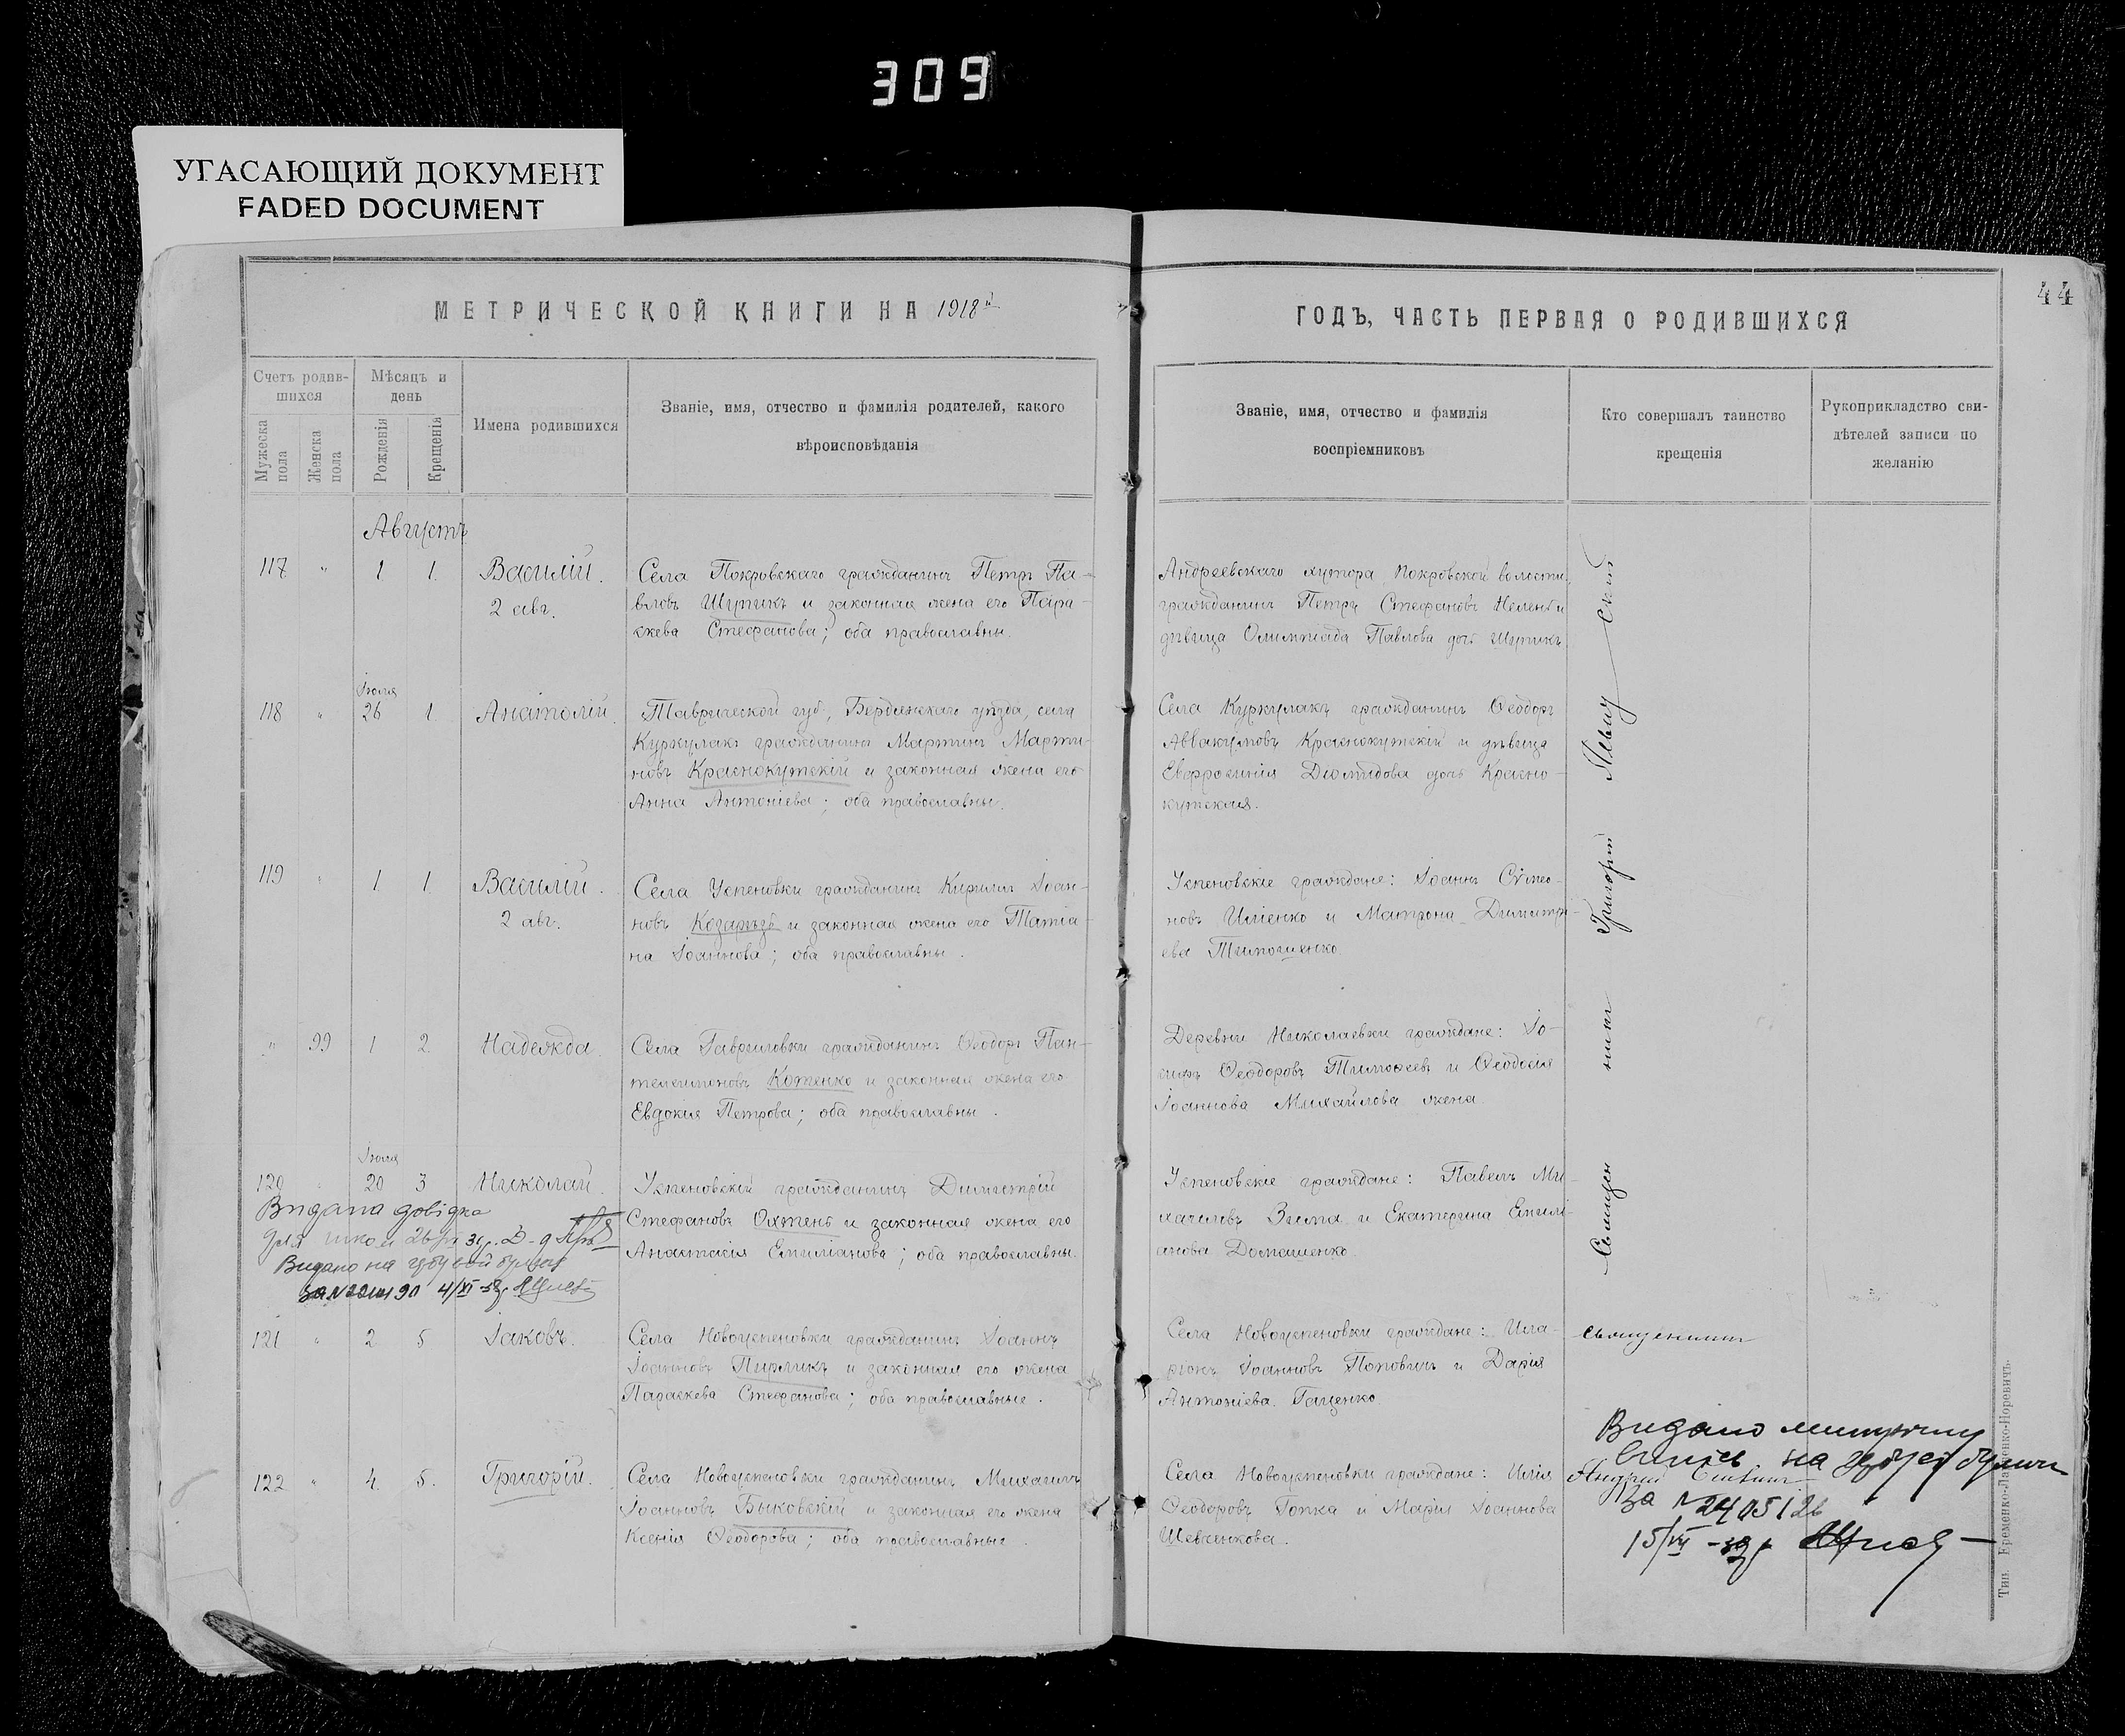 309
УГАСАЮЩИЙ ДОКУМЕНТ
FADED DOCUMENT
44
МЕТРИЧЕСКОЙ КНИГИ НА 1918й
ГОДЪ, ЧАСТЬ ПЕРВАЯ О РОДИВШИХСЯ
Счетъ родив-
шихся
Мѣсяцъ и
день
Мужеска пола
Женска пола
Рожденія
Крещенія
Имена родившихся
Званіе, имя, отчество и фамилія родителей, какого
вѣроисповѣданія
Званіе, имя, отчество и фамилія
воспріемниковъ
Кто совершалъ таинство
крещенія
Рукоприкладство сви-
дѣтелей записи по
желанію
Августъ
117 " 1 1. Василій.
2 авг.
Села Покровскаго гражданинъ Петръ Па-
вловъ Шупикъ и законная жена его Пара-
скева Стефанова; оба православны.
Андреевскаго хутора Покровской волости,
гражданинъ Петръ Стефановъ и
дѣвица Олимпіада Павлова дочь Шупикъ
Іюля
118 " 26 1 Анатолій.
Таврической губ., Бердянскаго уѣзда, села
Куркулакъ гражданинъ Мартинъ Марти-
новъ Краснокутскій и законная жена его
Анна Антоніева; оба православны.
Села Куркулакъ гражданинъ Ѳеодоръ
Аввакумовъ Краснокутскій и дѣвица
Евфросинія Діомидова дочь Красно-
кутская.
119 " 1 1 Василій.
2 авг.
Села Успеновки гражданинъ Кириллъ Іоан-
новъ Козарѣзъ и законная жена его Татіа-
на Іоаннова; оба православны.
Успеновскіе граждане: Іоаннъ Сѵмео-
новъ Ильенко и Матрона Димитрі-
ева Тимошенко.
" 99 1 2 Надежда.
Села Гавриловки гражданинъ Ѳеодоръ Пан-
телеимоновъ Котенко и законная жена его
Евдокія Петрова; оба православны.
Деревни Николаевки граждане: Іо-
сифъ Ѳеодоровъ Тимоѳеевъ и Ѳеодосія
Іоаннова Михайлова жена.
Іюля
120 " 20 3 Николай.
Успеновскій гражданинъ Димитрій
Стефановъ Охтень и законная жена его
Анастасія Емиліанова; оба православны.
Успеновскіе граждане: Павелъ Ми-
хаиловъ Зима и Екатерина Емилі-
анова Домашенко.
Видана довідка
для
Видано на
4/XI
121 " 2 5 Іаковъ.
Села Новоуспеновки гражданинъ Іоаннъ
Іоанновъ Пирликъ и законная его жена
Параскева Стефанова; оба православные.
Села Новоуспеновки граждане: Ила-
ріонъ Іоанновъ Поповичъ и Дарія
Антоніева Гаценко.
122 " 4. 5. Григорій.
Села Новоуспеновки гражданинъ Михаилъ
Іоанновъ Быковскій и законная его жена
Ксенія Ѳеодорова; оба православные.
Села Новоуспеновки граждане: Илія
Ѳеодоровъ Гопка и Марія Іоаннова
Шевченкова.
Священникъ Григорій
священникъ
Андрей
Видано
на
За №
15/VII
Тип. Еременко-Норевичъ.